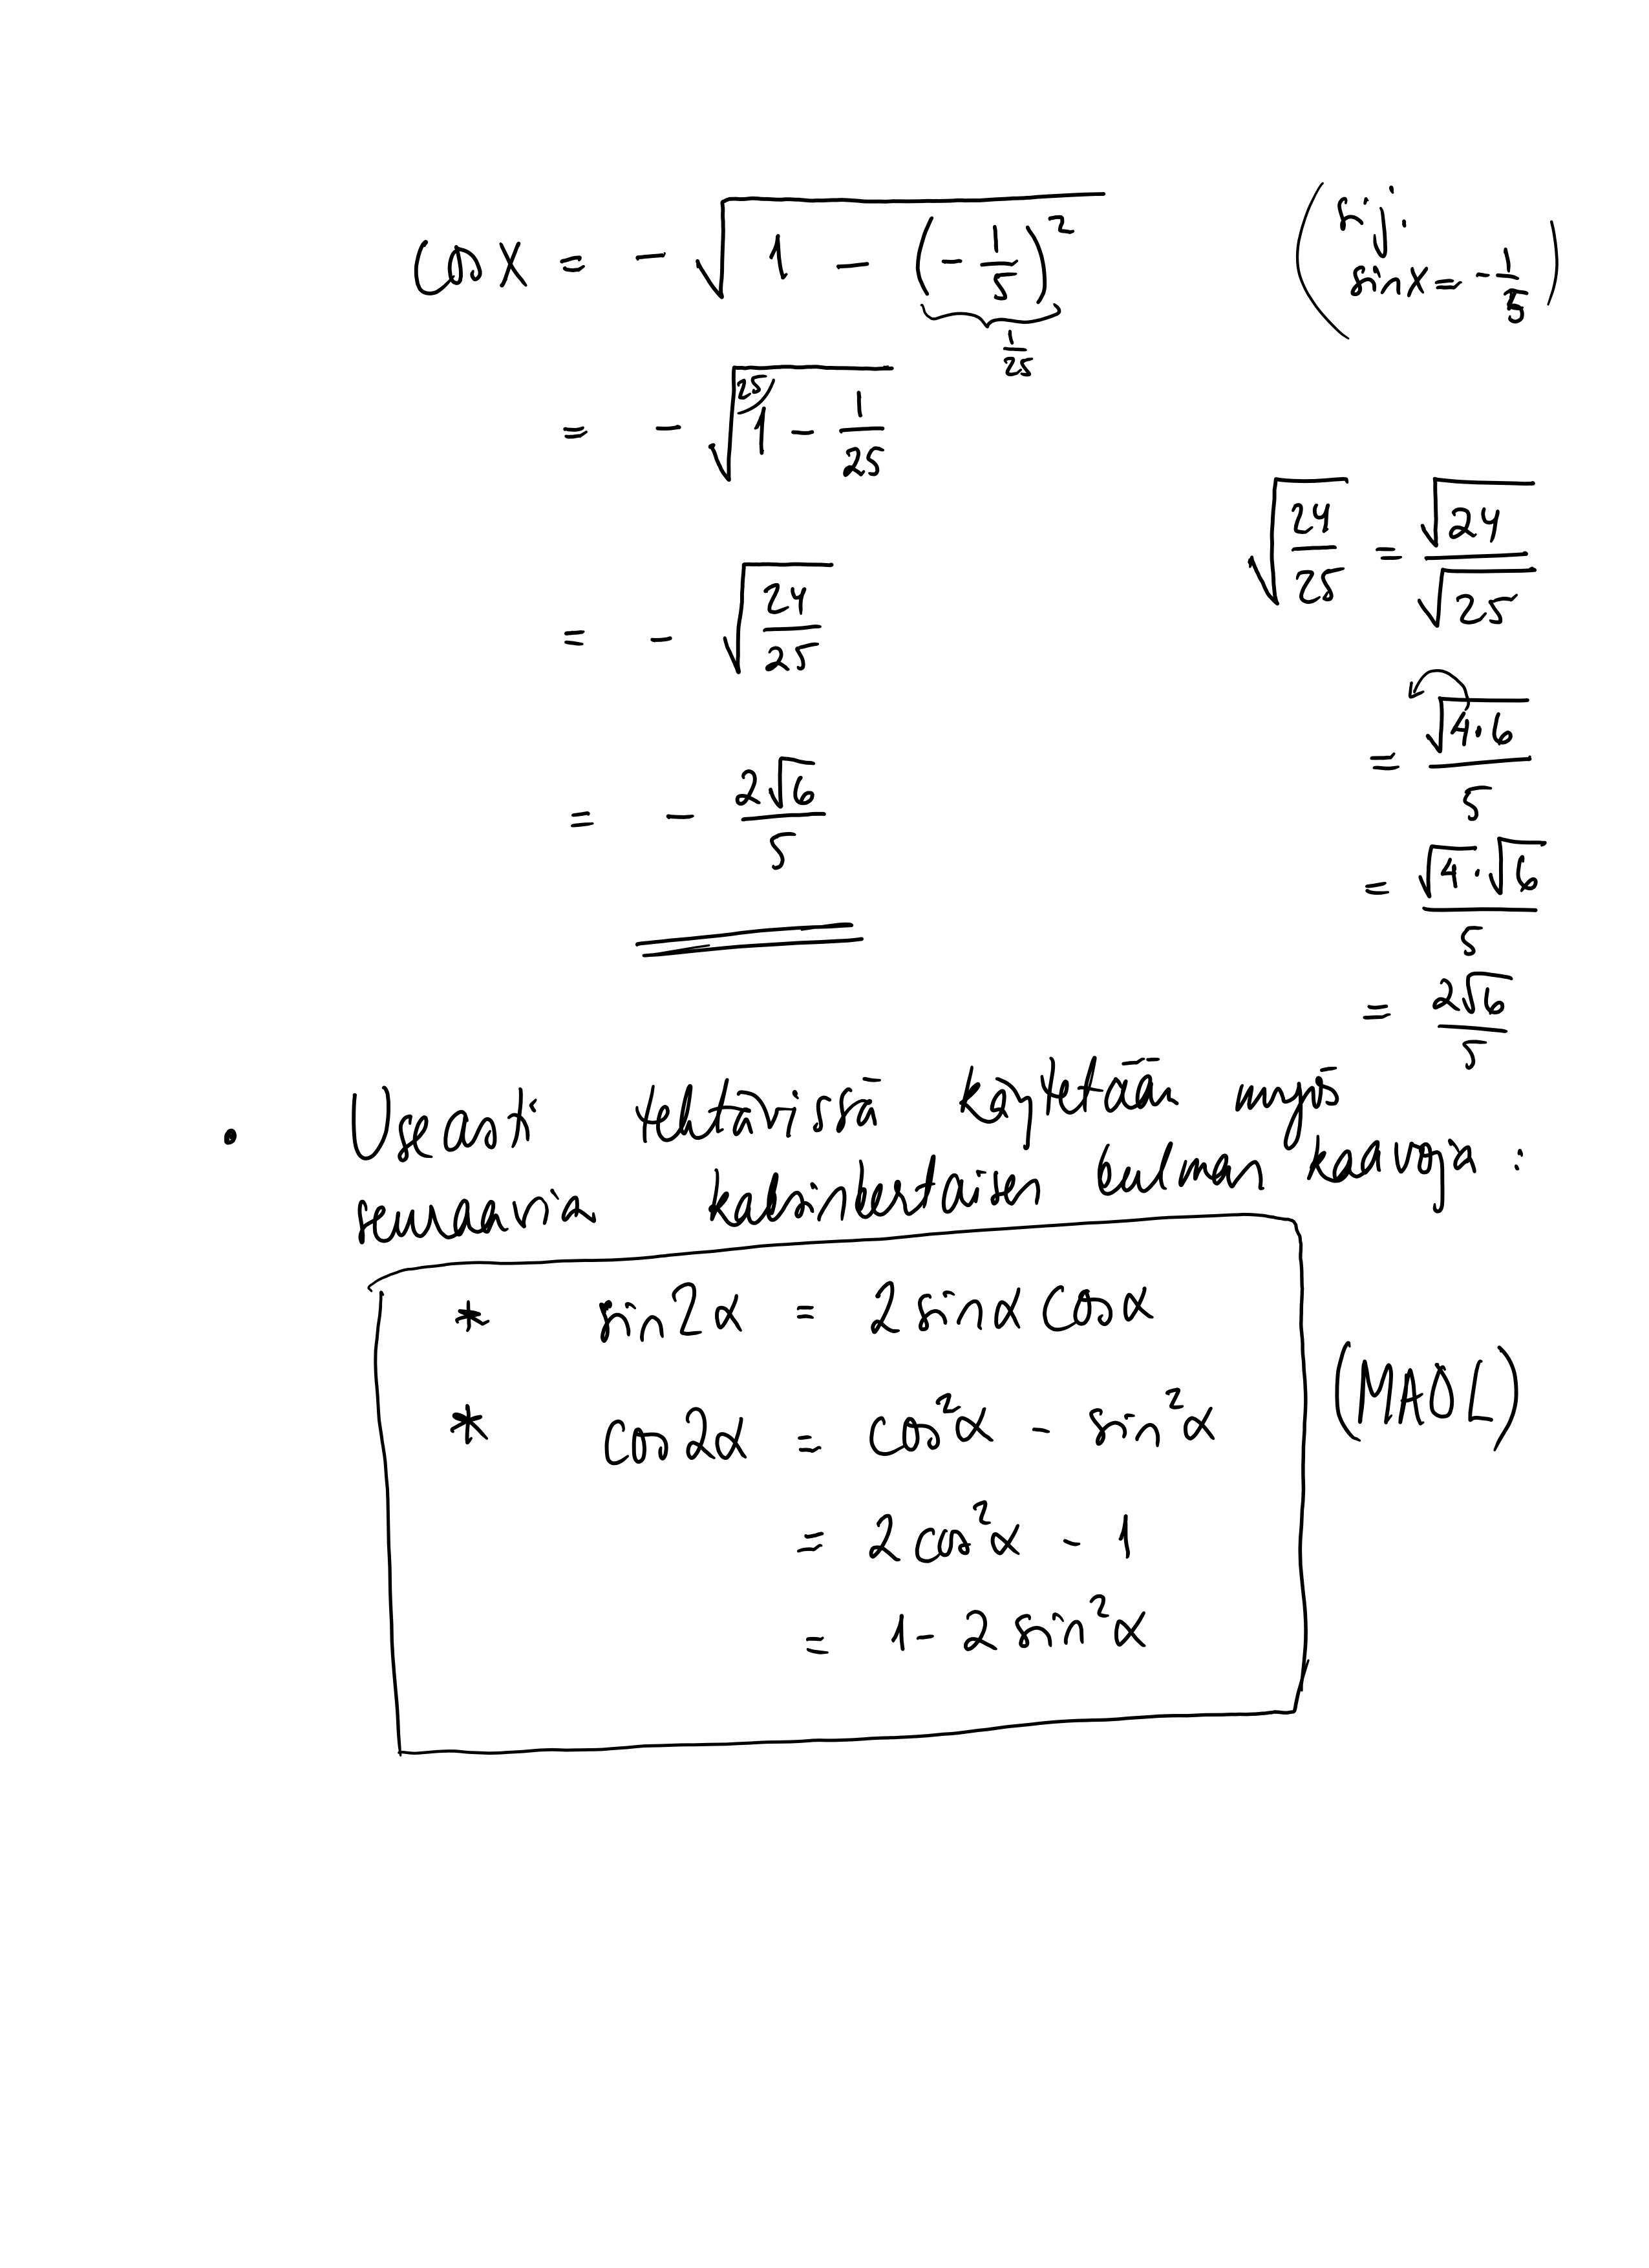 cos x = - √(1 - (- 1/5)²) (sij. sin x = - 1/5)
1/25
= - √(²⁵⁾1 - 1/25)
= - √(24/25)
= - 2√6/5
√(24/25) = √24/√25
= √(4·6)/5
= √4·√6/5
= 2√6/5
• Useasti tehtävissä käytetään myös
seuraavia kaksinkertaisen kulman kaavoja :
* sin2α = 2 sinα cosα
* cos2α = cos²α - sin²α
= 2cos²α - 1
= 1 - 2 sin²α
(MAOL)